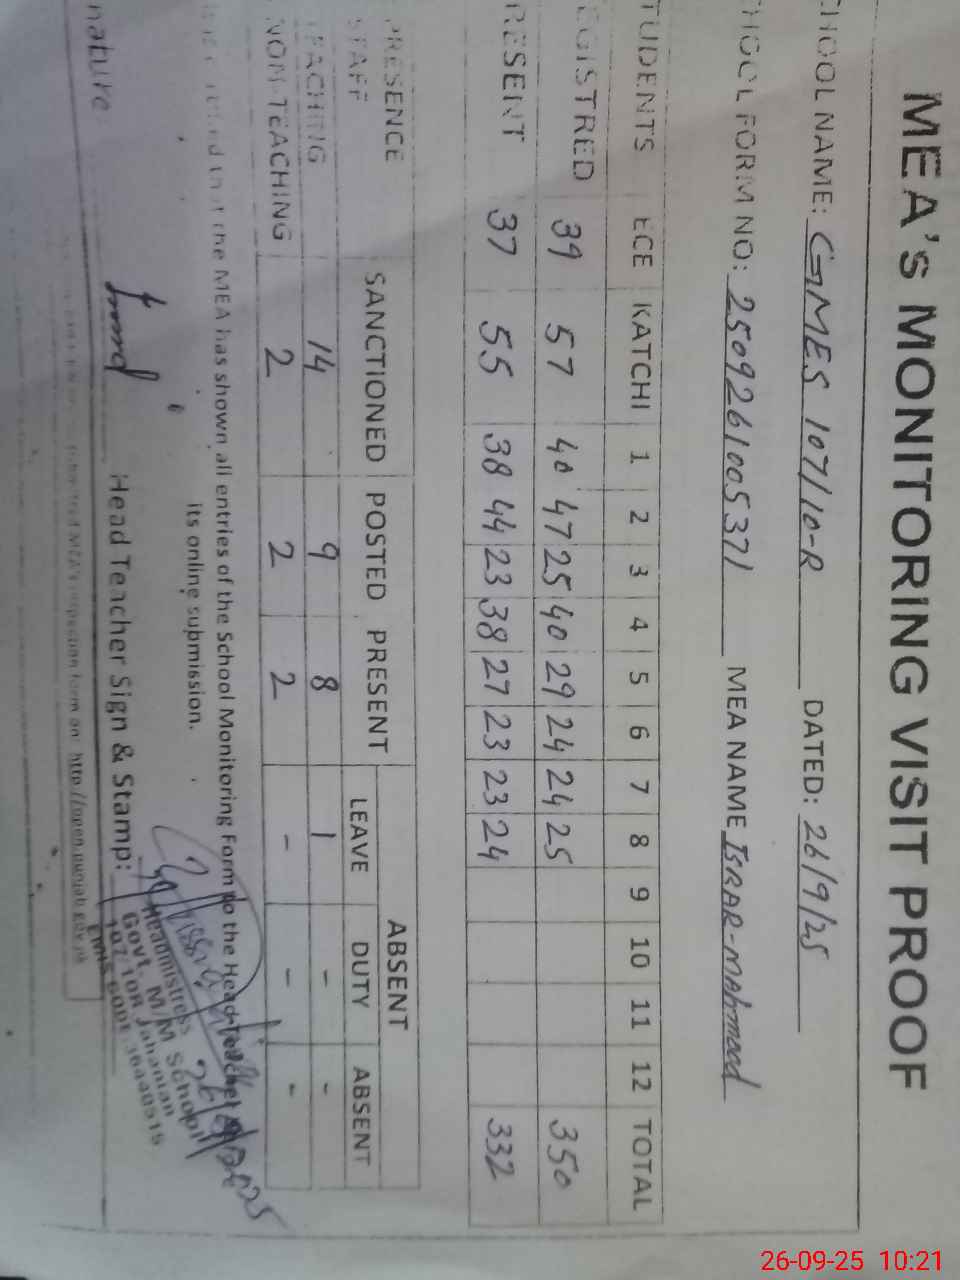 MEA's MONITORING VISIT PROOF
CHOOL NAME: GMES 107/10-R DATED: 26/9/25
CHOOL FORM NO: 2509261005371 MEA NAME ISRAR-MAHMOOD
TUDENTS ECE KATCHI 1 2 3 4 5 6 7 8 9 10 11 12 TOTAL
EGISTRED 39 57 40 47 25 40 29 24 24 25 350
RESENT 37 55 38 44 23 38 27 23 23 24 332
PRESENCE SANCTIONED POSTED PRESENT ABSENT
STAFF LEAVE DUTY ABSENT
EACHING 14 9 8 1 - -
NON-TEACHING 2 2 2 - - -
that the MEA has shown all entries of the School Monitoring Form to the Head Teacher
its online submission.
nature Head Teacher Sign & Stamp:
Headmistress
Govt. M/M School
107.10R Jahanian
EMIS CODE
26/9/2025
MEA's inspection form on: http://open.punjab.gov.pk
26-09-25 10:21